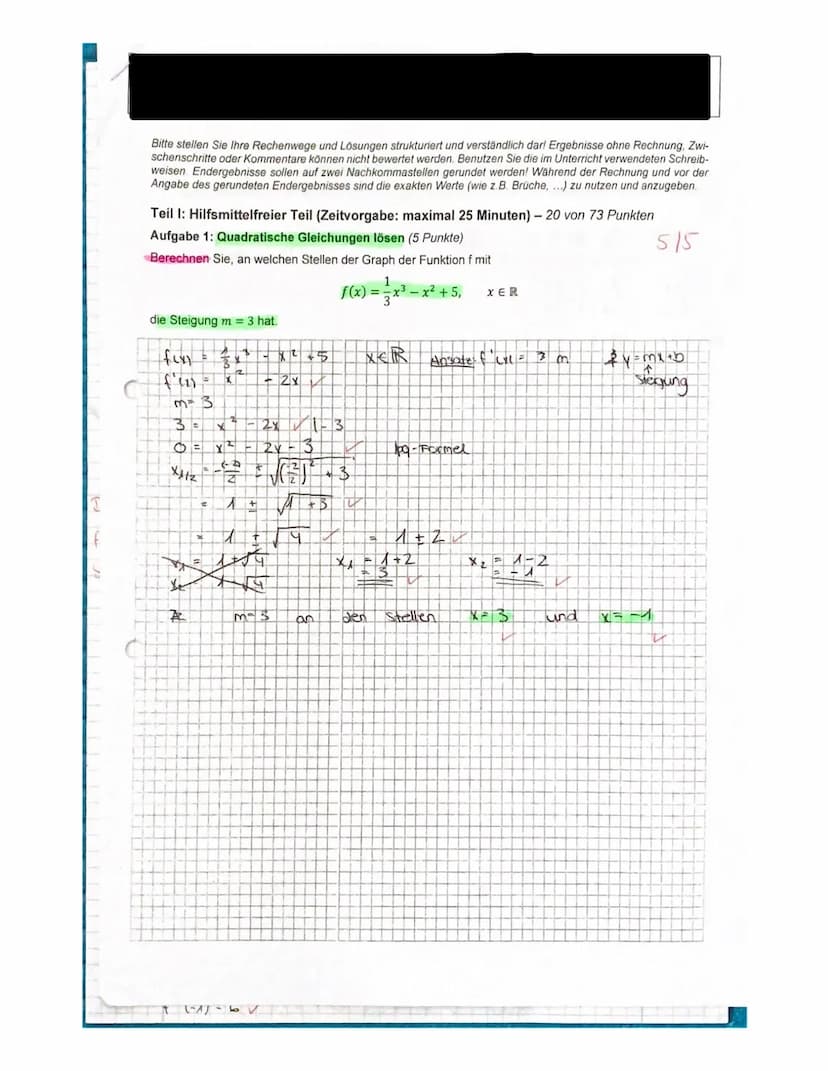 Bitte stellen Sie Ihre Rechenwege und Lösungen strukturiert und verständlich dar! Ergebnisse ohne Rechnung, Zwi-
schenschritte oder Kommentare können nicht bewertet werden. Benutzen Sie die im Unterricht verwendeten Schreib-
weisen Endergebnisse sollen auf zwei Nachkommastellen gerundet werden! Während der Rechnung und vor der
Angabe des gerundeten Endergebnisses sind die exakten Werte (wie z.B. Brüche, ...) zu nutzen und anzugeben.
Teil I: Hilfsmittelfreier Teil (Zeitvorgabe: maximal 25 Minuten) – 20 von 73 Punkten
Aufgabe 1: Quadratische Gleichungen lösen (5 Punkte) 5/5
Berechnen Sie, an welchen Stellen der Graph der Funktion f mit
f(x) = 1/3 x³ − x² + 5, x ∈ ℝ
die Steigung m = 3 hat.
f(x) = 1/3 x³ - x² + 5 x∈ℝ Ansatz: f'(x) = m y = mx+b
f'(x) = x² - 2x ✓ ↑ Steigung
m = 3
3 = x² - 2x ✓ |-3
0 = x² - 2x - 3 ✓ pq-Formel
x1/2 = -(-2)/2 ± √((-2/2)² + 3)
= 1 ± √(1+3) ✓
= 1 ± √4 ✓ = 1 ± 2 ✓
x1 = 1+√4 x1 = 1+2 x2 = 1-2
x2 1-√4 = 3 ✓ = -1 ✓
m=3 an den Stellen x=3 und x=-1
✓ ✓
(-1) - 6 ✓